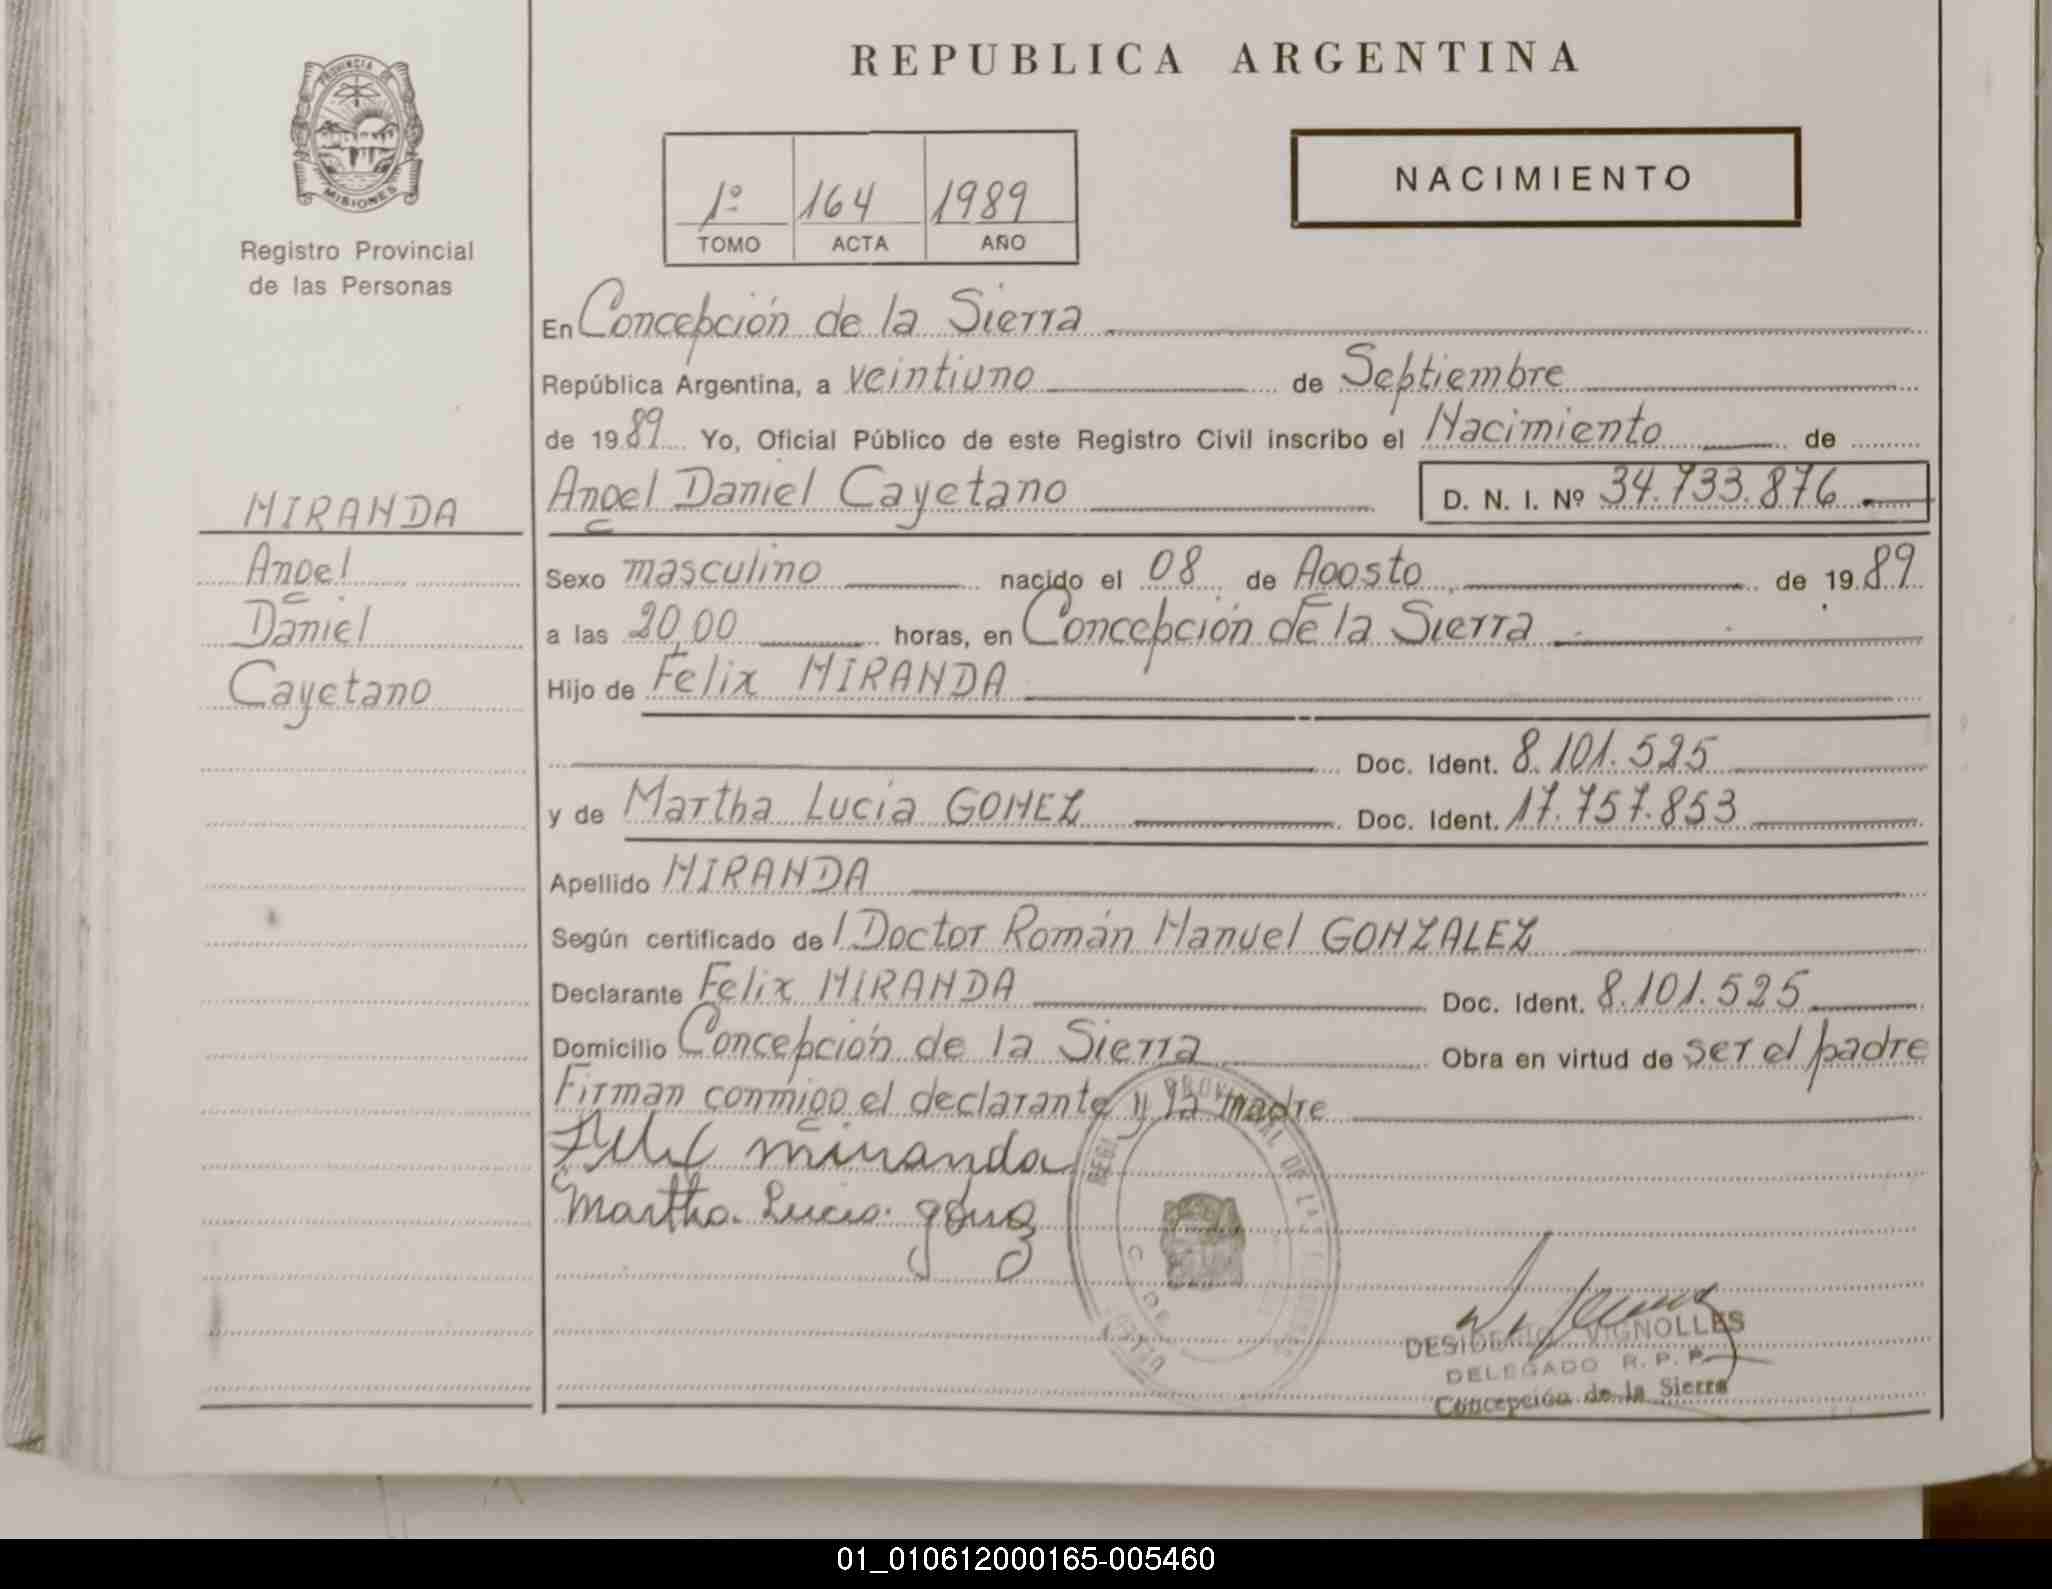 REPUBLICA ARGENTINA
PROVINCIA DE
MISIONES
Registro Provincial
de las Personas
1º 164 1989
TOMO ACTA AÑO
NACIMIENTO
En Concepción de la Sierra
República Argentina, a veintiuno de Septiembre
de 1989 Yo, Oficial Público de este Registro Civil inscribo el Nacimiento de
Angel Daniel Cayetano D. N. I. Nº 34.733.876
MIRANDA
Angel
Daniel
Cayetano
Sexo masculino nacido el 08 de Agosto de 1989
a las 20,00 horas, en Concepción de la Sierra
Hijo de Felix MIRANDA
Doc. Ident. 8.101.525
y de Martha Lucia GOMEZ Doc. Ident. 17.757.853
Apellido MIRANDA
Según certificado del Doctor Román Manuel GONZALEZ
Declarante Felix MIRANDA Doc. Ident. 8.101.525
Domicilio Concepción de la Sierra Obra en virtud de ser el padre
Firman conmigo el declarante y la madre
Felix miranda
Martha Lucia gomez
DESIDERIO VIGNOLLES
DELEGADO R. P. P.
Concepción de la Sierra
01_010612000165-005460